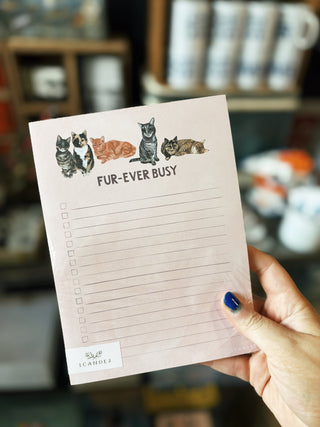 FUR-EVER BUSY
ICANDEJ